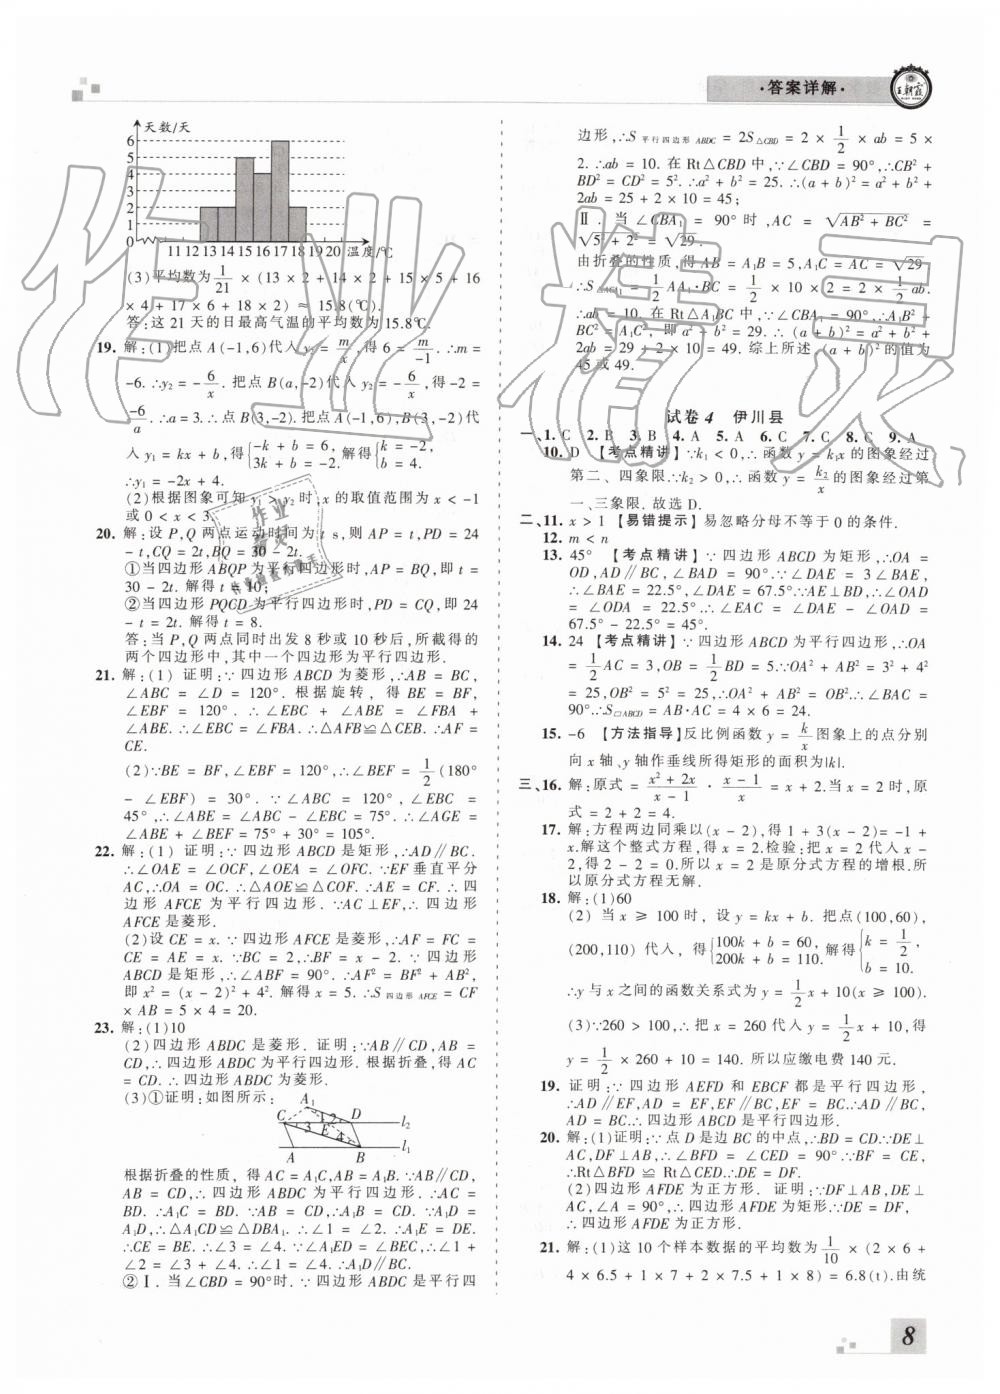 ·答案详解·
王朝霞
天数/天
6
5
4
3
2
1
0 11 12 13 14 15 16 17 18 19 20 温度/℃
(3)平均数为1/21 × (13 × 2 + 14 × 2 + 15 × 5 + 16
× 4 + 17 × 6 + 18 × 2) ≈ 15.8(℃).
答:这 21 天的日最高气温的平均数为 15.8℃.
19. 解:(1)把点 A(-1,6)代入 y₂ = m/x,得 6 = m/-1.∴m =
-6.∴y₂ = -6/x. 把点 B(a,-2)代入 y₂ = -6/x,得 -2 =
-6/a.∴a = 3.∴点 B(3,-2). 把点 A(-1,6),B(3,-2)代
入 y₁ = kx + b,得{-k + b = 6, 3k + b = -2. 解得{k = -2, b = 4.
∴y₁ = -2x + 4.
(2)根据图象可知 y₁ > y₂ 时,x 的取值范围为 x < -1
或 0 < x < 3.
20. 解:设 P,Q 两点运动时间为 t s,则 AP = t,PD = 24
- t,CQ = 2t,BQ = 30 - 2t.
①当四边形 ABQP 为平行四边形时,AP = BQ,即 t =
30 - 2t. 解得 t = 10;
②当四边形 PQCD 为平行四边形时,PD = CQ,即 24
- t = 2t. 解得 t = 8.
答:当 P,Q 两点同时出发 8 秒或 10 秒后,所截得的
两个四边形中,其中一个四边形为平行四边形.
21. 解:(1) 证明:∵ 四边形 ABCD 为菱形,∴AB = BC,
∠ABC = ∠D = 120°. 根据旋转, 得 BE = BF,
∠EBF = 120°. ∴ ∠EBC + ∠ABE = ∠FBA +
∠ABE. ∴∠EBC = ∠FBA. ∴△AFB≌△CEB. ∴AF =
CE.
(2)∵BE = BF,∠EBF = 120°,∴∠BEF = 1/2(180°
- ∠EBF) = 30°. ∵ ∠ABC = 120°,∠EBC =
45°,∴∠ABE = ∠ABC - ∠EBC = 75°. ∴∠AGE =
∠ABE + ∠BEF = 75° + 30° = 105°.
22. 解:(1) 证明:∵ 四边形 ABCD 是矩形,∴AD∥BC.
∴∠OAE = ∠OCF,∠OEA = ∠OFC. ∵EF 垂直平分
AC,∴OA = OC. ∴△AOE≌△COF. ∴AE = CF. ∴ 四
边形 AFCE 为平行四边形. ∵AC⊥EF,∴ 四边形
AFCE 是菱形.
(2)设 CE = x. ∵ 四边形 AFCE 是菱形,∴AF = FC =
CE = AE = x. ∵BC = 2,∴BF = x - 2. ∵ 四边形
ABCD 是矩形,∴∠ABF = 90°. ∴AF² = BF² + AB²,
即 x² = (x - 2)² + 4². 解得 x = 5. ∴S四边形 AFCE = CF
× AB = 5 × 4 = 20.
23. 解:(1)10
(2)四边形 ABDC 是菱形. 证明:∵AB∥CD,AB =
CD,∴四边形 ABDC 为平行四边形. 根据折叠,得 AC
= CD. ∴四边形 ABDC 为菱形.
(3)①证明:如图所示:
A₁ C 1 2 D l₂
3 E 4
A B l₁
根据折叠的性质, 得 AC = A₁C,AB = A₁B. ∵AB∥CD,
AB = CD,∴ 四边形 ABDC 为平行四边形. ∴AC =
BD. ∴A₁C = BD. ∵AB = CD,∴A₁B = CD. ∵A₁D =
A₁D,∴△A₁CD≌△DBA₁. ∴∠1 = ∠2. ∴A₁E = DE.
∴CE = BE. ∴∠3 = ∠4. ∵∠A₁ED = ∠BEC,∴∠1 +
∠2 = ∠3 + ∠4. ∴∠1 = ∠4. ∴A₁D∥BC.
②Ⅰ. 当∠CBD = 90°时. ∵四边形 ABDC 是平行四
边形,∴S平行四边形 ABDC = 2S△CBD = 2 × 1/2 × ab = 5 ×
2. ∴ab = 10. 在 Rt△CBD 中,∵∠CBD = 90°,∴CB² +
BD² = CD² = 5². ∴a² + b² = 25. ∴(a + b)² = a² + b² +
2ab = 25 + 2 × 10 = 45;
Ⅱ. 当 ∠CBA₁ = 90° 时, AC = √AB² + BC² =
√5² + 2² = √29.
由折叠的性质,得 AB = A₁B = 5,A₁C = AC = √29.
∴S△ACA₁ = 1/2 AA₁·BC = 1/2 × 10 × 2 = 2 × 1/2 ab.
∴ab = 10. 在 Rt△A₁BC 中,∵∠CBA₁ = 90°,∴A₁B² +
BC² = A₁C², 即 a² + b² = 29. ∴(a + b)² = a² + b² +
2ab = 29 + 2 × 10 = 49. 综上所述,(a + b)² 的值为
45 或 49.
试卷 4 伊川县
一、1. C 2. B 3. B 4. A 5. A 6. C 7. C 8. C 9. A
10. D 【考点精讲】∵k₁ < 0,∴函数 y = k₁x 的图象经过
第二、四象限. ∵k₂ > 0,∴函数 y = k₂/x 的图象经过第
一、三象限. 故选 D.
二、11. x > 1 【易错提示】易忽略分母不等于 0 的条件.
12. m < n
13. 45° 【考点精讲】∵四边形 ABCD 为矩形,∴OA =
OD,AD∥BC,∠BAD = 90°. ∵∠DAE = 3∠BAE,
∴∠BAE = 22.5°,∠DAE = 67.5°. ∵AE⊥BD,∴∠OAD
= ∠ODA = 22.5°. ∴∠EAC = ∠DAE - ∠OAD =
67.5° - 22.5° = 45°.
14. 24 【考点精讲】∵四边形 ABCD 为平行四边形,∴OA
= 1/2 AC = 3,OB = 1/2 BD = 5. ∵OA² + AB² = 3² + 4²
= 25,OB² = 5² = 25,∴OA² + AB² = OB². ∴∠BAC =
90°. ∴S□ABCD = AB·AC = 4 × 6 = 24.
15. -6 【方法指导】反比例函数 y = k/x 图象上的点分别
向 x 轴、y 轴作垂线所得矩形的面积为|k|.
三、16. 解:原式 = x² + 2x/x - 1 · x - 1/x = x + 2. 当 x = 2 时,原
式 = 2 + 2 = 4.
17. 解:方程两边同乘以(x - 2),得 1 + 3(x - 2) = -1 +
x. 解这个整式方程,得 x = 2. 检验:把 x = 2 代入 x -
2,得 2 - 2 = 0. 所以 x = 2 是原分式方程的增根. 所
以原分式方程无解.
18. 解:(1)60
(2) 当 x ≥ 100 时, 设 y = kx + b. 把点(100,60),
(200,110) 代入, 得{100k + b = 60, 200k + b = 110. 解得{k = 1/2, b = 10.
∴y 与 x 之间的函数关系式为 y = 1/2 x + 10(x ≥ 100).
(3)∵260 > 100,∴把 x = 260 代入 y = 1/2 x + 10,得
y = 1/2 × 260 + 10 = 140. 所以应缴电费 140 元.
19. 证明:∵四边形 AEFD 和 EBCF 都是平行四边形,
∴AD∥EF,AD = EF,EF∥BC,EF = BC. ∴AD∥BC,
AD = BC. ∴四边形 ABCD 是平行四边形.
20. 解:(1)证明:∵点 D 是边 BC 的中点,∴BD = CD. ∵DE⊥
AC,DF⊥AB,∴∠BFD = ∠CED = 90°. ∵BF = CE,
∴Rt△BFD ≌ Rt△CED. ∴DE = DF.
(2)四边形 AFDE 为正方形. 证明:∵DF⊥AB,DE⊥
AC,∠A = 90°,∴四边形 AFDE 为矩形. ∵DE = DF,
∴四边形 AFDE 为正方形.
21. 解:(1)这 10 个样本数据的平均数为1/10 × (2 × 6 +
4 × 6.5 + 1 × 7 + 2 × 7.5 + 1 × 8) = 6.8(t). 由统
8